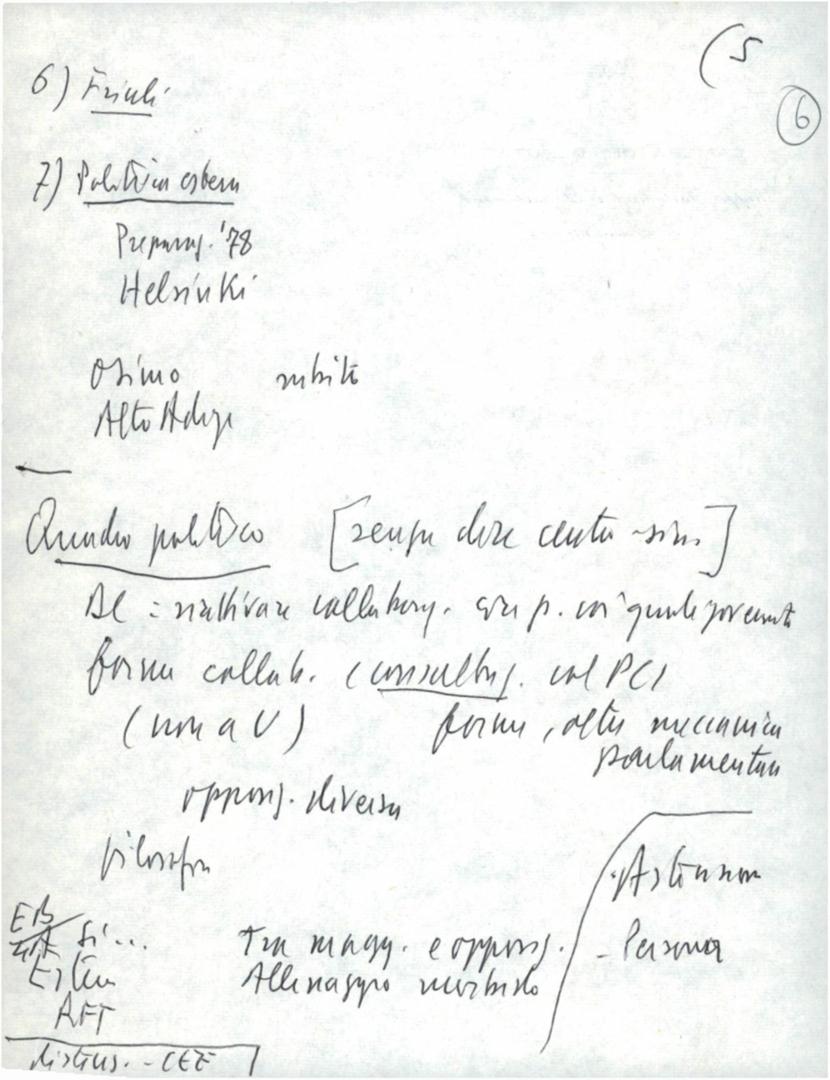 (5
6
6) Friuli
7) Politica estera
Preparaz. '78
Helsinki
Osimo subito
Alto Adige
Quadro politico [senza dire centro-sin.]
DC = riattivare collaboraz. con p. coi quali governato
forme collab. (consultaz. col PCI
(non a V) forme, oltre meccanica
parlamentare
opposiz. diversa
filosofia
Si...
Estero
AFT
Tra magg. e opposiz.
Allenaggio morbido
Astensioni
- Persona
distens. - CEE